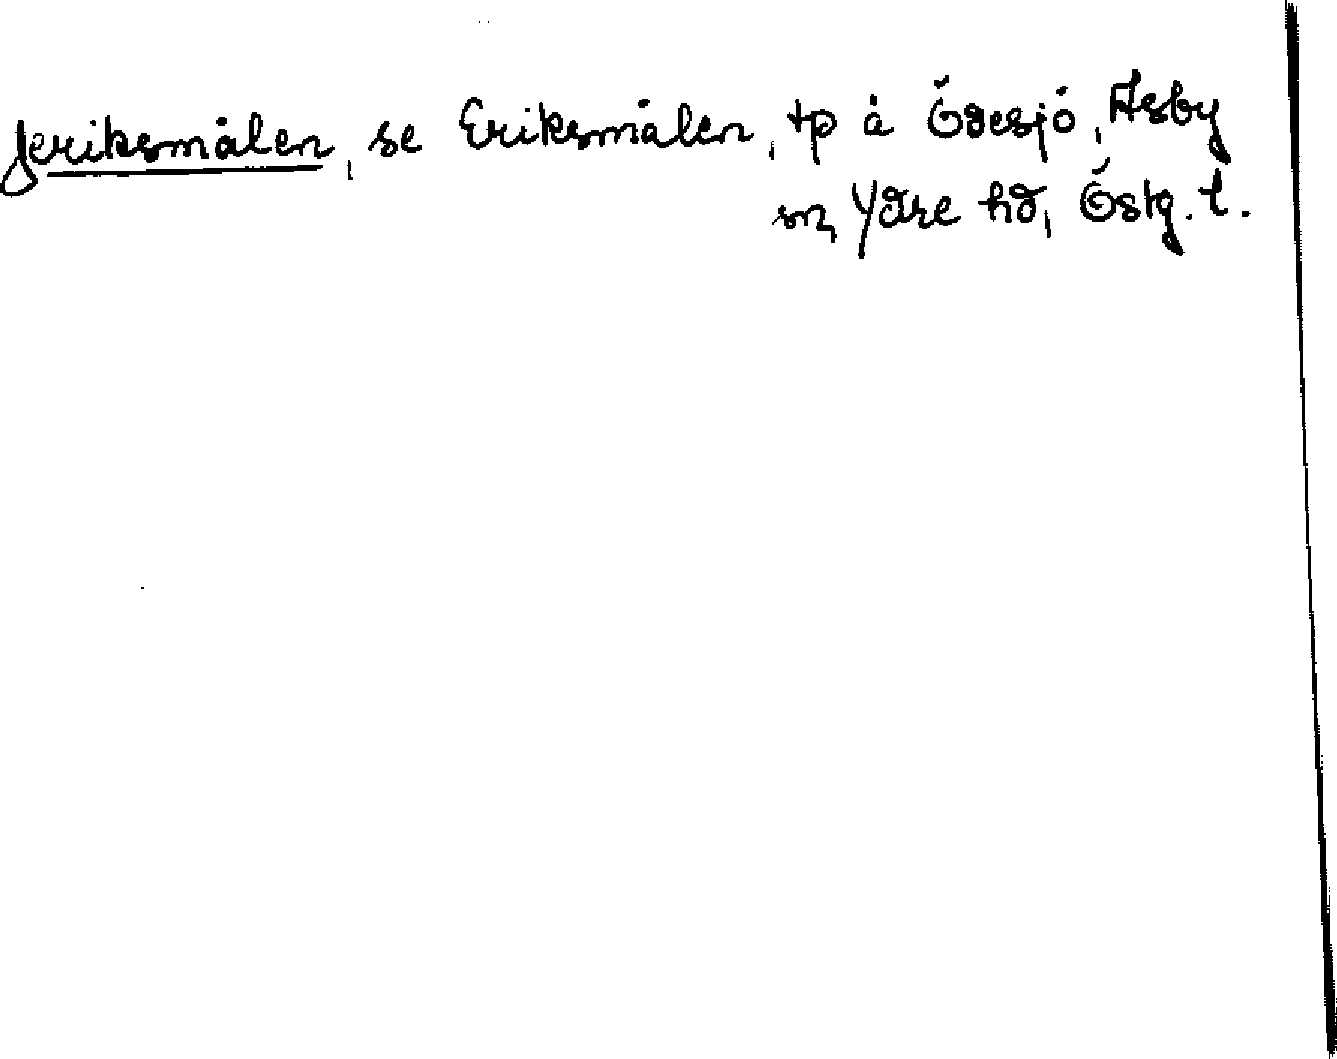 Jeriksmålen, se Eriksmålen, tp å Ödesjö, Asby
sn, Ydre hd, Östg. l.